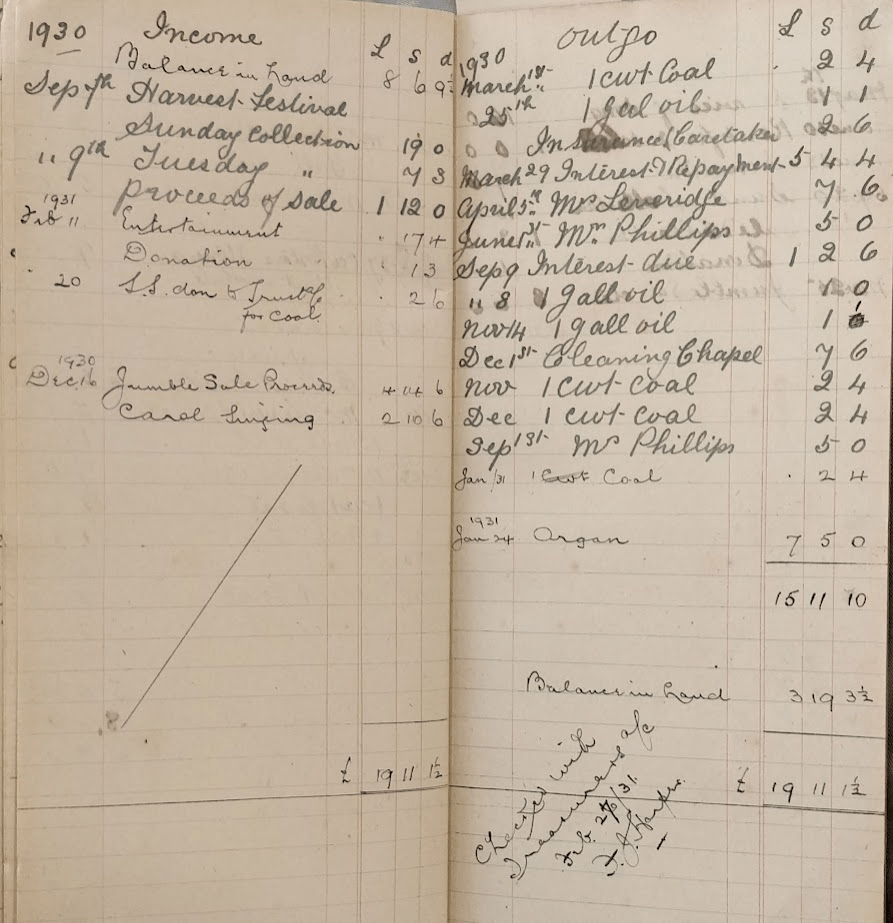 1930 Income £ s d
Balance in hand 8 6 9½
Sep 7th Harvest Festival
Sunday Collection 19 0
" 9th Tuesday " 7 3
Proceeds of Sale 1 12 0
1931
Feb 11 Entertainment . 17 4
Donation . 1 3
. 20 S.S. don to Trust a/c . 2 6
for coal.
1930
Dec. 16 Jumble Sale Proceeds. 4 14 6
Carol Singing 2 10 6
£ 19 11 1½
Outgo £ s d
1930
March 1st 1 cwt Coal . 2 4
" 25th 1 gal oil 1 1
Insurance (Caretaker 2 6
March 29 Interest & Repayment 5 4 4
April 5th Mrs Leveridge 7 6
June 1st Mrs Phillips 5 0
Sep 9 Interest due 1 2 6
" 8 1 gall oil 1 0
Nov 14 1 gall oil 1 1
Dec 1st Cleaning Chapel 7 6
Nov 1 cwt Coal 2 4
Dec 1 cwt Coal 2 4
Sep 1st Mrs Phillips 5 0
Jan /31 1 cwt Coal . 2 4
1931
Jan 24 Organ 7 5 0
15 11 10
Balance in hand 3 19 3½
£ 19 11 1½
Checked with
Treasurers a/c
Feb. 27/31.